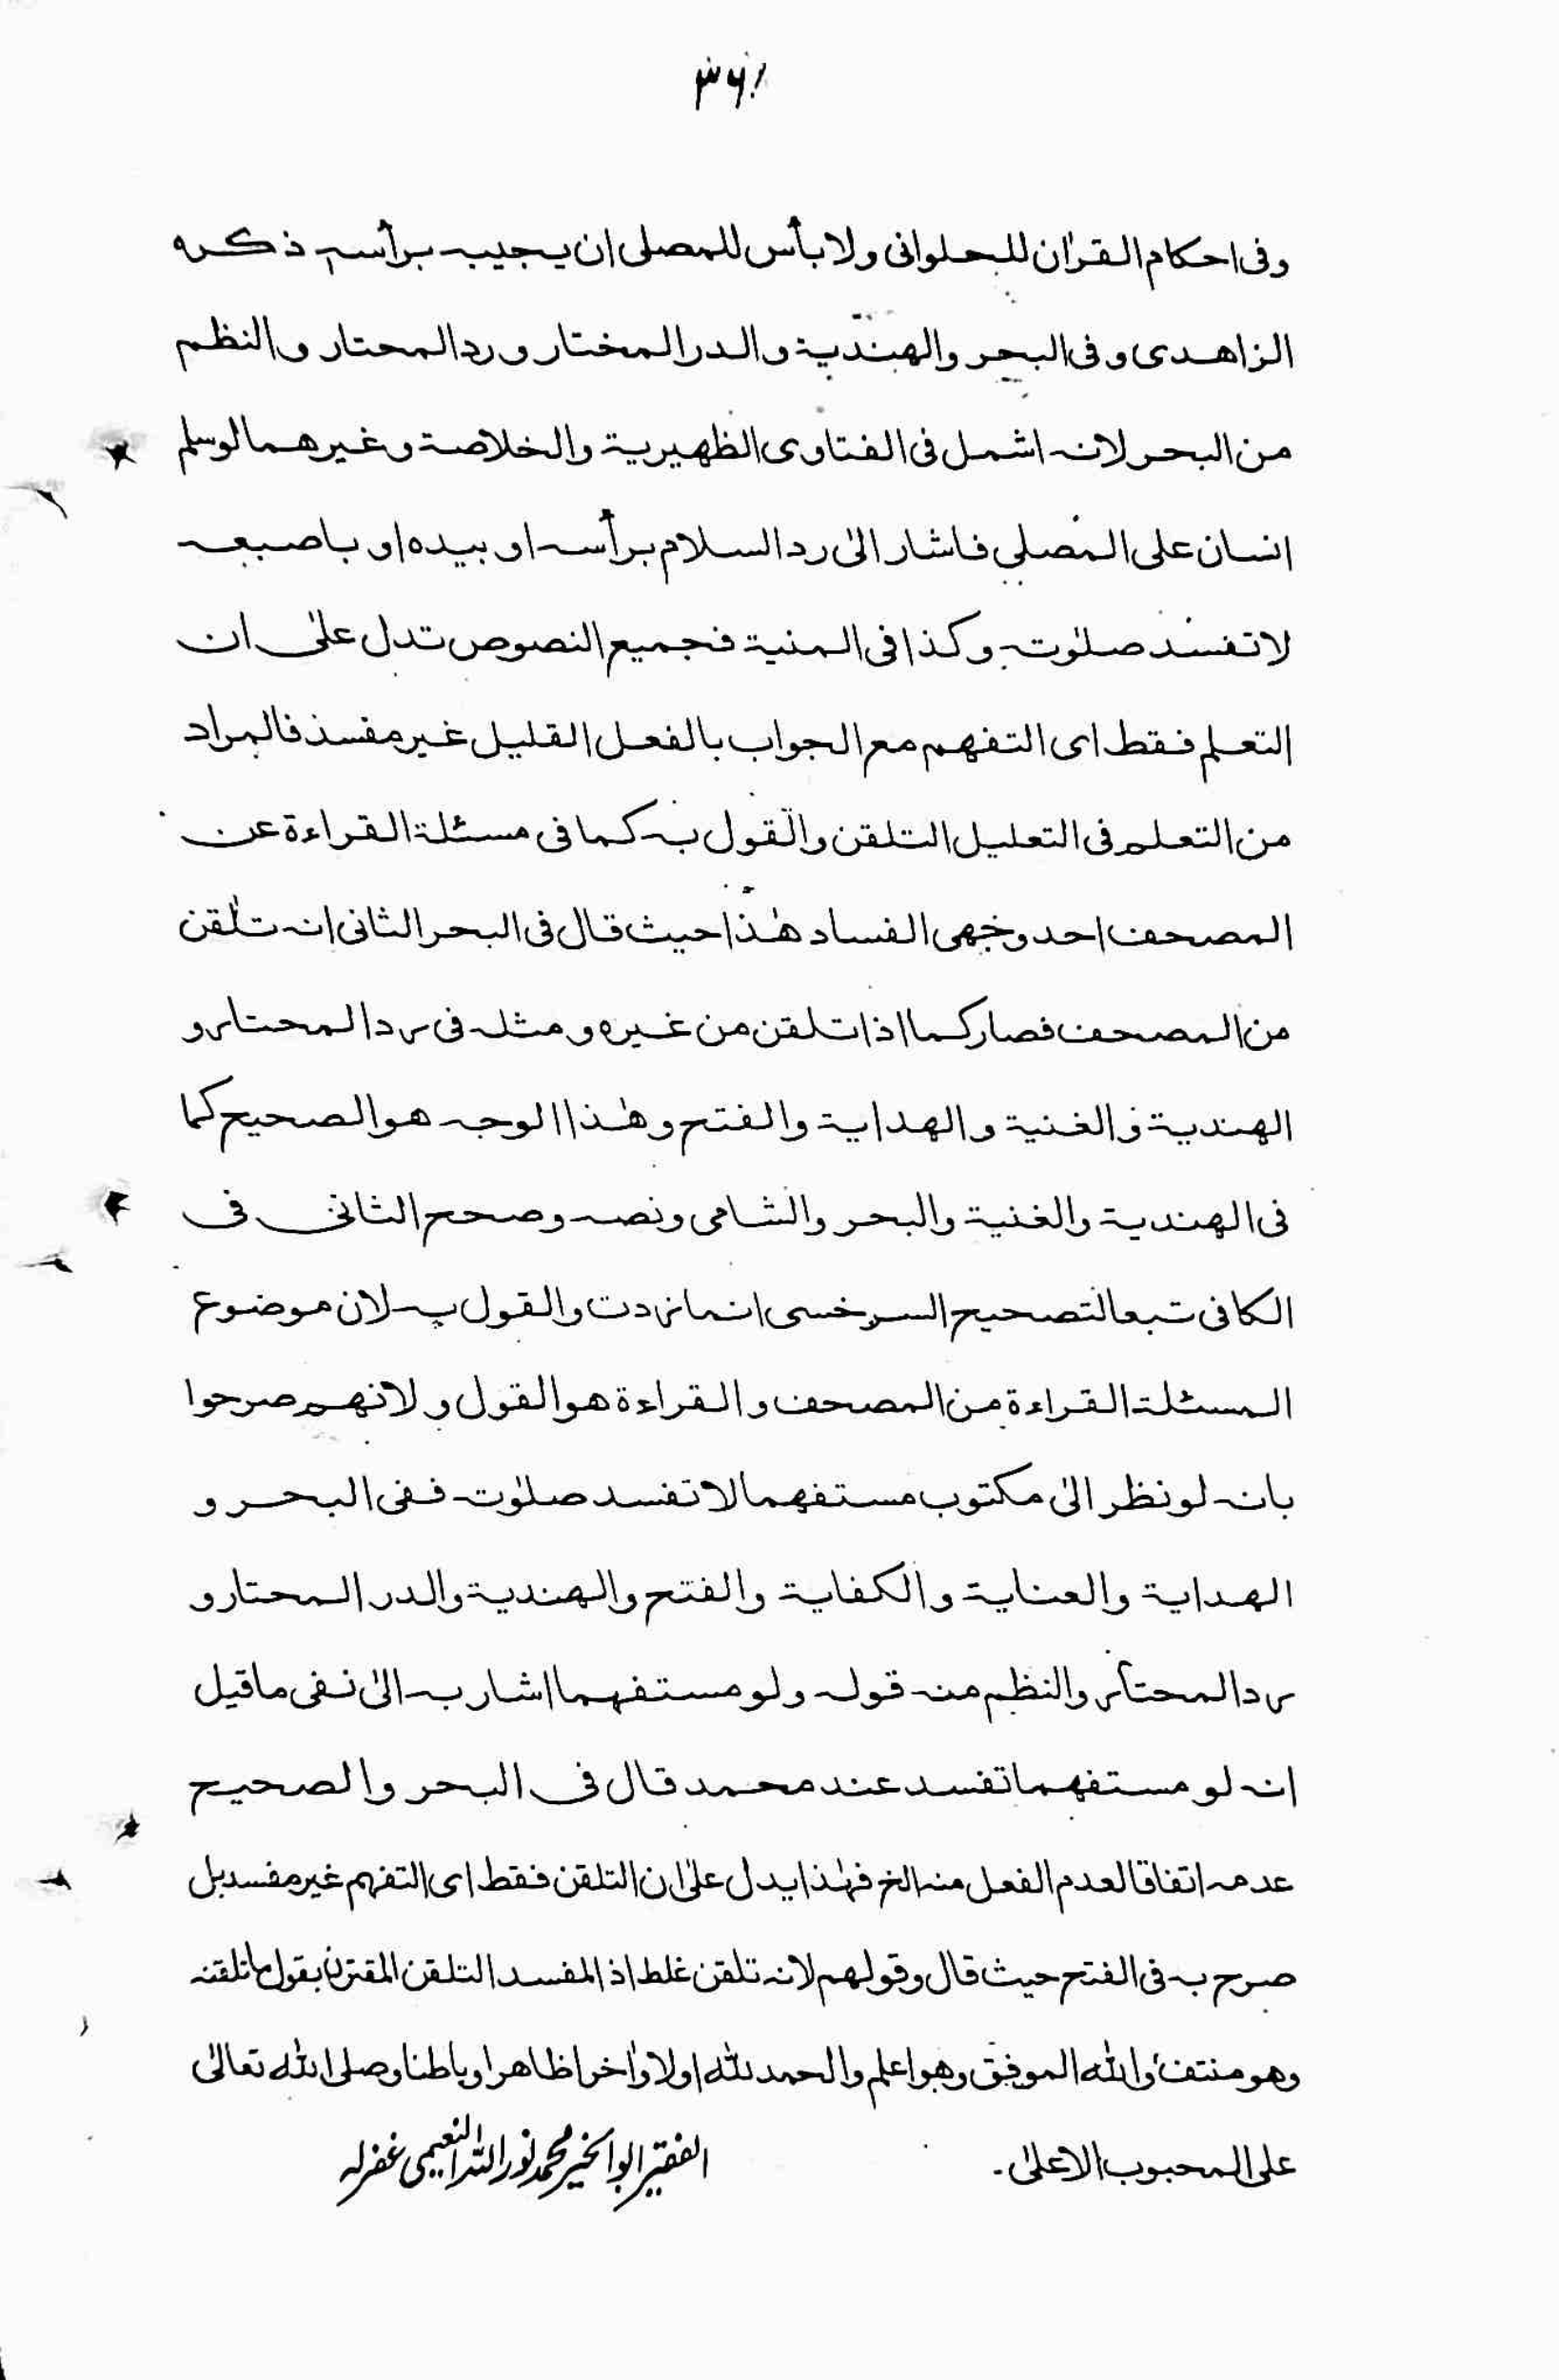 ۳۶۱
وفى احكام القراٰن للحلوانى ولا بأس للمصلى ان يجيب برأسه ذكره
الزاهدى وفى البحر والهندية والدر المختار ورد المحتار والنظم
من البحر لانه اشمل فى الفتاوى الظهيرية والخلاصة وغيرهما لو سلم
انسان على المصلى فاشار الىٰ رد السلام برأسه او بيده او باصبعه
لا تفسد صلوٰته وكذا فى المنية فجميع النصوص تدل علىٰ ان
التعلم فقط اى التفهم مع الجواب بالفعل القليل غير مفسد فالمراد
من التعلم فى التعليل التلقن والقول به كما فى مسئلة القراءة عن
المصحف احد وجهى الفساد هٰذا حيث قال فى البحر الثانى انه تلقن
من المصحف فصار كما اذا تلقن من غيره ومثله فى رد المحتار و
الهندية والغنية والهداية والفتح وهٰذا الوجه هو الصحيح كما
فى الهندية والغنية والبحر والشامى ونصه وصحح الثانى فى
الكافى تبعا لتصحيح السرخسى انما زدت والقول به لان موضوع
المسئلة القراءة من المصحف والقراءة هو القول ولانهم صرحوا
بانه لو نظر الىٰ مكتوب مستفهما لا تفسد صلوٰته ففى البحر و
الهداية والعناية والكفاية والفتح والهندية والدر المختار و
رد المحتار والنظم منه قوله ولو مستفهما اشار به الىٰ نفى ما قيل
انه لو مستفهما تفسد عند محمد قال فى البحر والصحيح
عدمه اتفاقا لعدم الفعل منه الخ فهٰذا يدل علىٰ ان التلقن فقط اى التفهم غير مفسد بل
صرح به فى الفتح حيث قال وقولهم لانه تلقن غلط اذ المفسد التلقن المقترن بقول ما تلقنه
وهو منتف والله الموفق وهو اعلم والحمد لله اولا واٰخرا ظاهرا وباطنا وصلى الله تعالىٰ
على المحبوب الاعلىٰ۔
الفقير ابو الخير محمد نور الله النعيمى غفر له